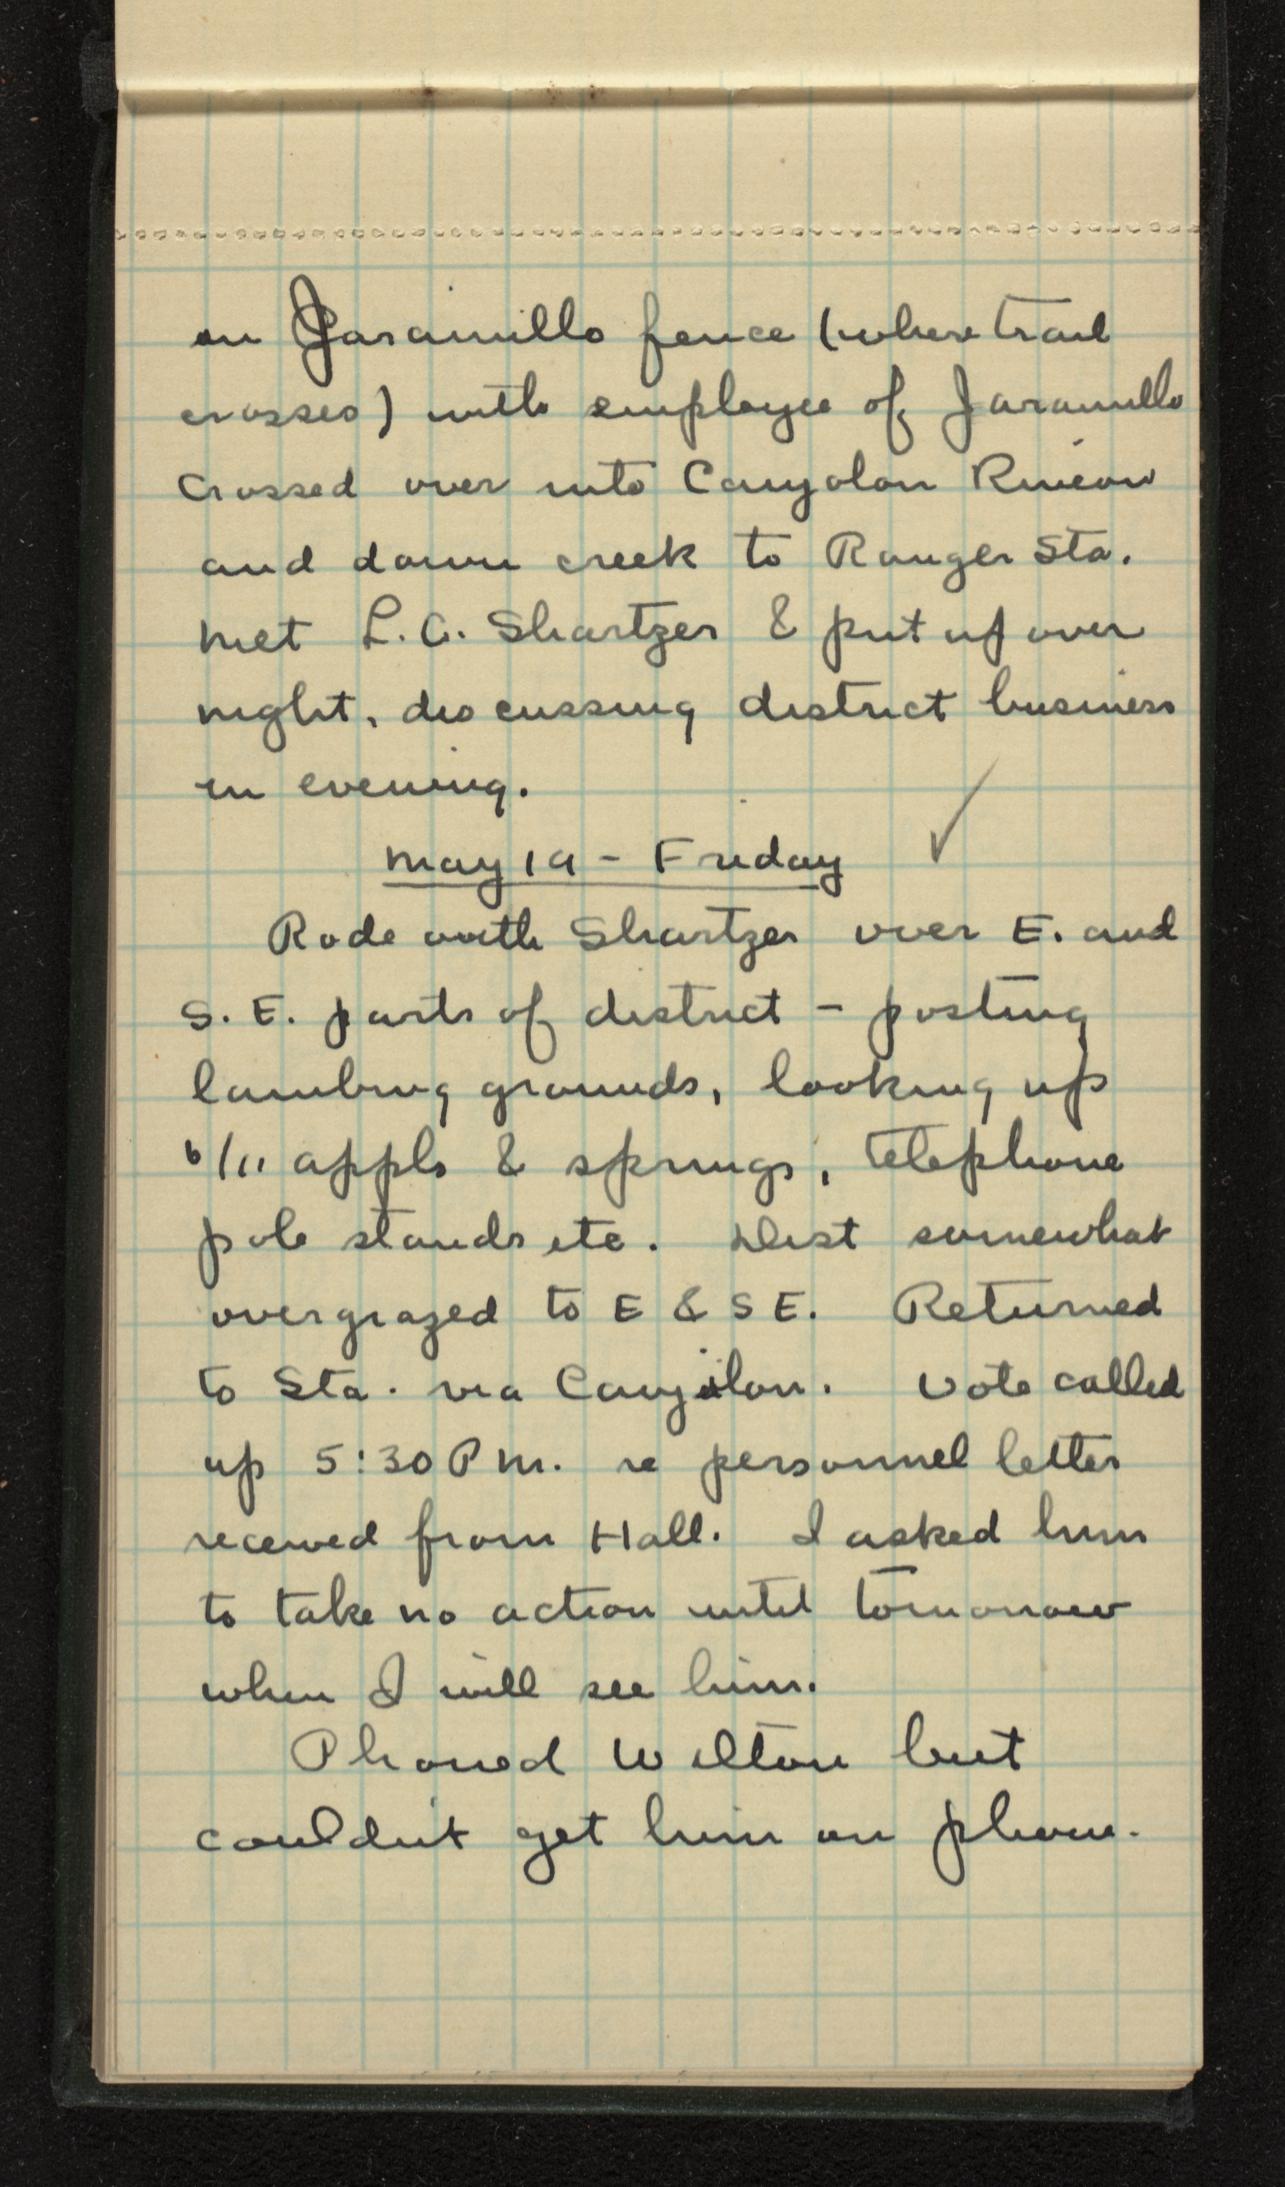 on Jaramillo fence (where trail
crosses) with employee of Jaramillo
Crossed over into Canjolon Rincon
and down creek to Ranger Sta.
Met L.C. Shartzer & put up over
night, discussing district business
in evening.
May 19 - Friday
Rode with Shartzer over E. and
S.E. parts of district - posting
lambing grounds, looking up
6/11 appls & springs, telephone
pole stands etc. Dist somewhat
overgrazed to E & SE. Returned
to Sta. via Canjilon. Vote called
up 5:30 P.M. re personnel letter
received from Hall. I asked him
to take no action until tomorrow
when I will see him.
Phoned Wilton but
couldn't get him on phone.